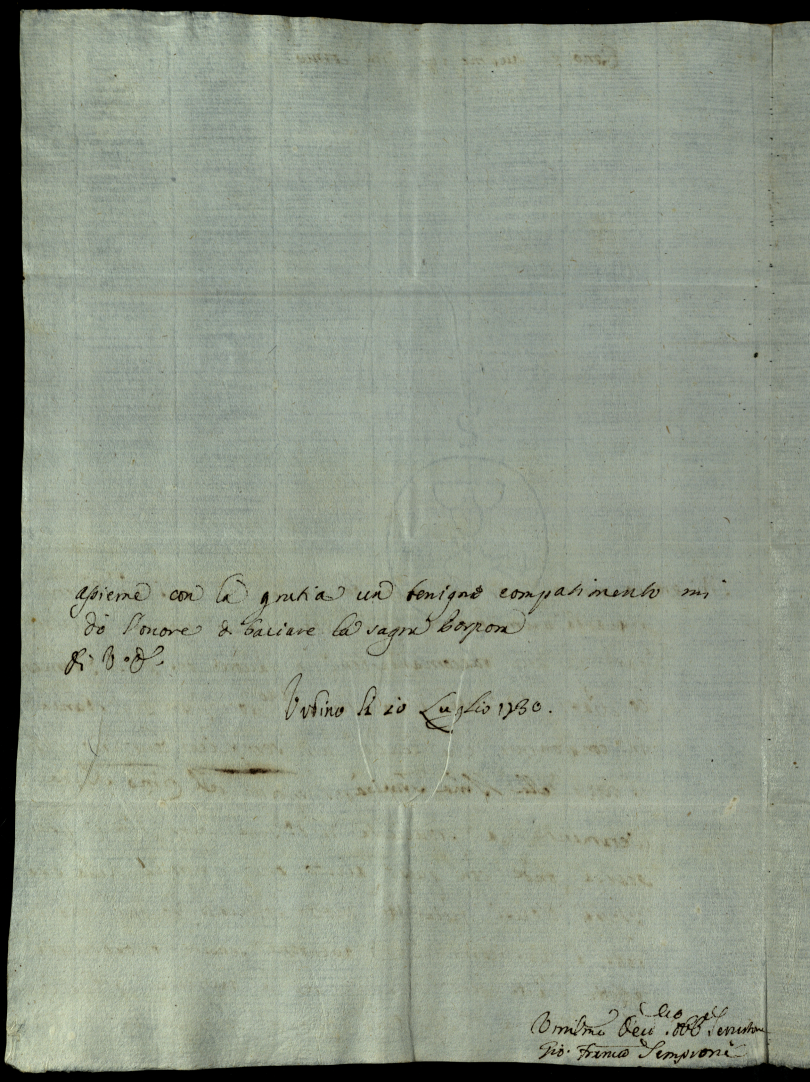 assieme con la gratia un benigno compatimento mi
dò l'onore di baciare la sagra Porpora
di V. E.
Urbino li 20 Luglio 1730.
Umilmo Devmo Obbmo Servitore
Gio. Franco Semproni